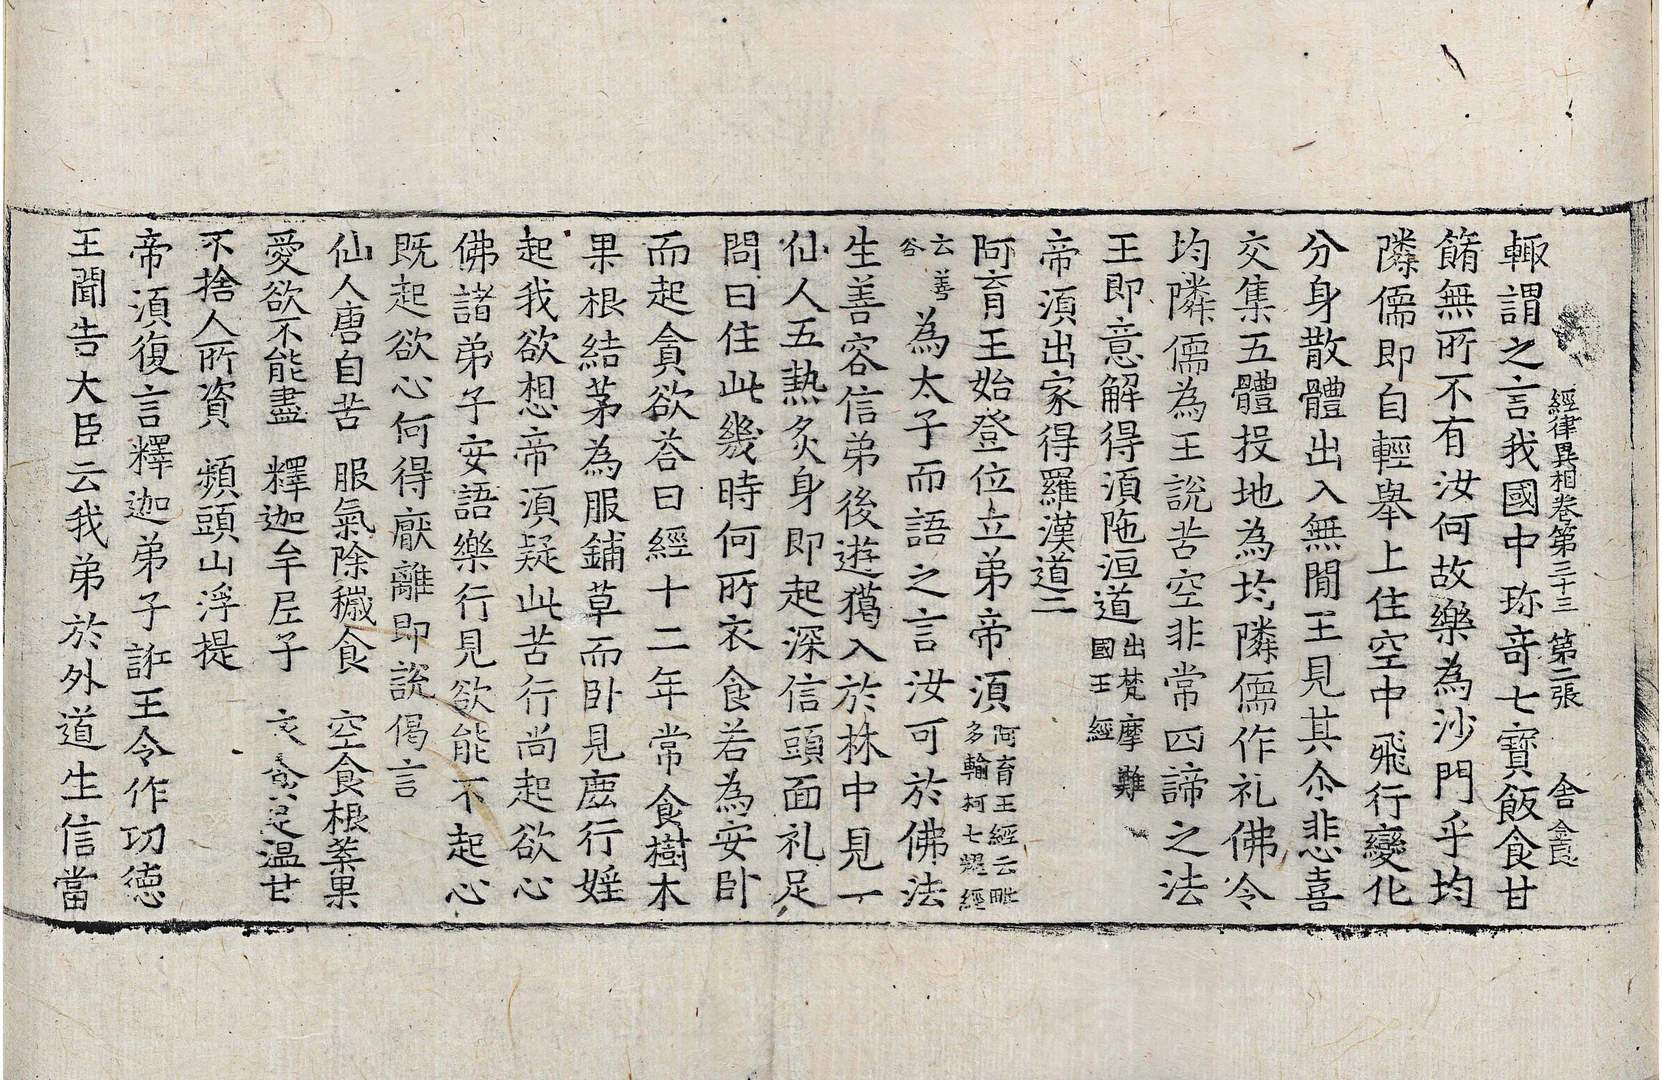 經律異相卷第三十三 第二張 舍
輙謂之言我國中珎竒七寶飯食甘
餚無所不有汝何故樂為沙門乎均
隣儒即自輕舉上住空中飛行變化
分身散體出入無閒王見其尒悲喜
交集五體投地為均隣儒作礼佛令
均隣儒為王說苦空非常四諦之法
王即意解得湏陁洹道出梵摩難國王經
帝湏出家得羅漢道二
阿育王始登位立弟帝湏阿育王經云毗多輸柯七耀經
云善容為太子而語之言汝可於佛法
生善容信弟後遊獦入於林中見一
仙人五熱炙身即起深信頭面礼足
問曰住此幾時何所衣食若為安卧
而起貪欲荅曰經十二年常食樹木
果根結茅為服鋪草而卧見鹿行婬
起我欲想帝湏疑此苦行尚起欲心
佛諸弟子安語樂行見欲能不起心
既起欲心何得厭離即說偈言
仙人唐自苦 服氣除穢食 空食根藥果
愛欲不能盡 釋迦牟尼子 衣食足温甘
不捨人所資 頻頭山浮提
帝湏復言釋迦弟子誑王令作功德
王聞告大臣云我弟於外道生信當